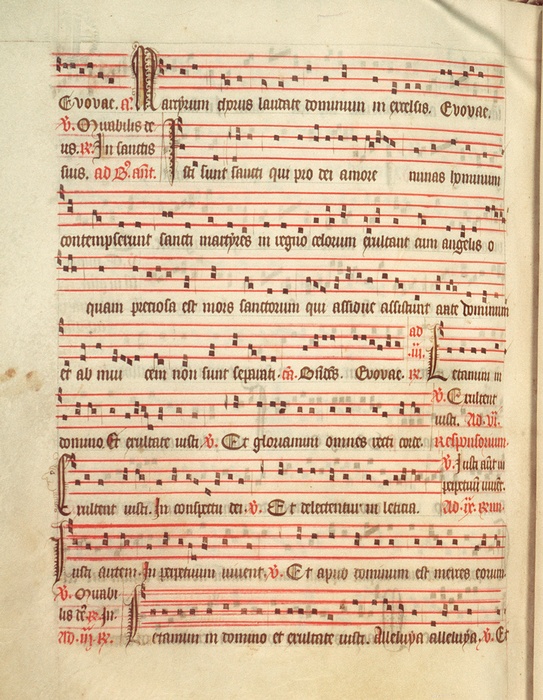 Evovae. a. Martyrum chorus laudate dominum in excelsis. Evovae.
V. Mirabilis de
us. R. In sanctis
suis. ad B. ant. Isti sunt sancti qui pro dei amore minas hominum
contempserunt sancti martyres in regno celorum exultant cum angelis o
quam preciosa est mors sanctorum qui assidue assistunt ante dominum
et ab invi cem non sunt separati. ca. Evovae. ad .iii. R. Letamini in
domino Et exultate iusti. V. Et gloriamini omnes recti corde.
V. Exultent
iusti. Ad .vi.
Responsorium.
Exultent iusti. In conspectu dei. V. Et delectentur in leticia.
V. Iusti aut in
perpetuum vivent.
Ad .ix.
Iusti autem. In perpetuum vivent. V. Et apud dominum est merces eorum.
V. Mirabi
lis R. In
Ad .iii. R. Letamini in domino et exultate iusti. Alleluya alleluya. V. Et